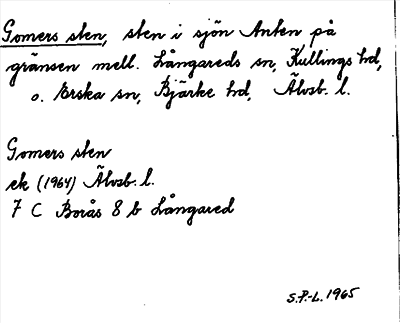 Gomers sten, sten i sjön Anten på
gränsen mell. Långareds sn, Kullings hd,
o. Erska sn, Bjärke hd, Älvsb. l.
Gomers sten
ek (1964) Älvsb. l.
7 C Borås 8 b Långared
S.P.-L. 1965